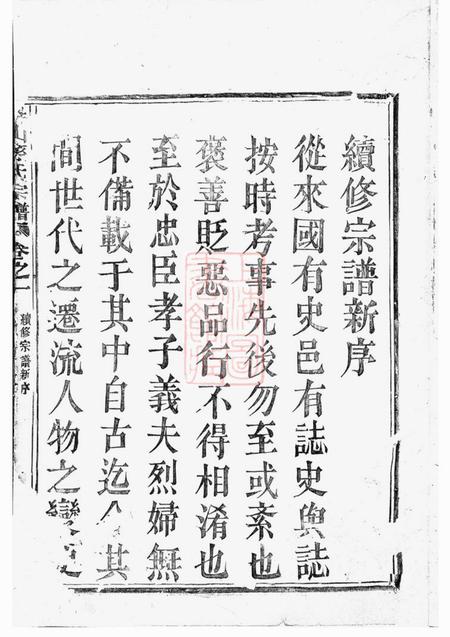 續修宗譜新序
從來國有史邑有誌史與誌
按時考事先後勿至或紊也
褒善貶惡品行不得相淆也
至於忠臣孝子義夫烈婦無
不備載于其中自古迄今其
間世代之遷流人物之變
氏宗譜 卷之一
續修宗譜新序